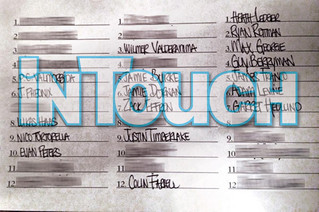 InTouch
1
2
3
4
5
6 J. PHOENIX
7
8 LUKAS HAAS
9. NICO TORTORELLA
10. EVAN PETERS
11
12
1
2
3. WILMER VALDERRAMA
4
5. JAMIE BURKE
6. JAMIE DORNAN
7. ZACK EFRON
8
9. JUSTIN TIMBERLAKE
10
11
12. COLIN FARRELL
1. HEATH LEDGER
2. RYAN ROTTMAN
3. MAX GEORGE
4. GUY BERRYMAN
5. JAMES FRANCO
6. ADAM LEVINE
7. GARRET HEDLUND
8
9
10
11
12